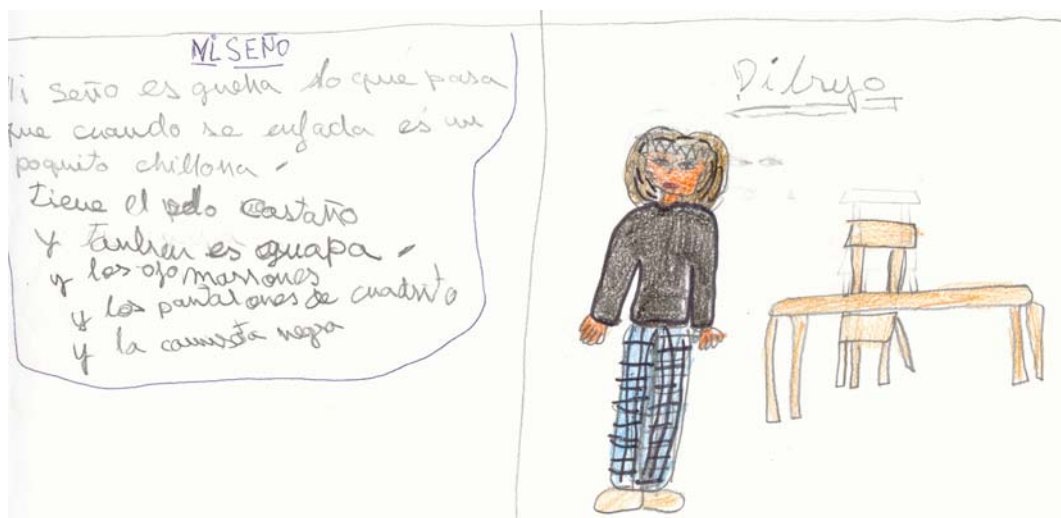 MI SEÑO
i seño es guena lo que pasa
que cuando se enfada es un
poquito chillona
tiene el pelo castaño
y tanbien es guapa
y los ojo marrones
y los pantalones de cuadrito
y la camiseta negra
Dibujo